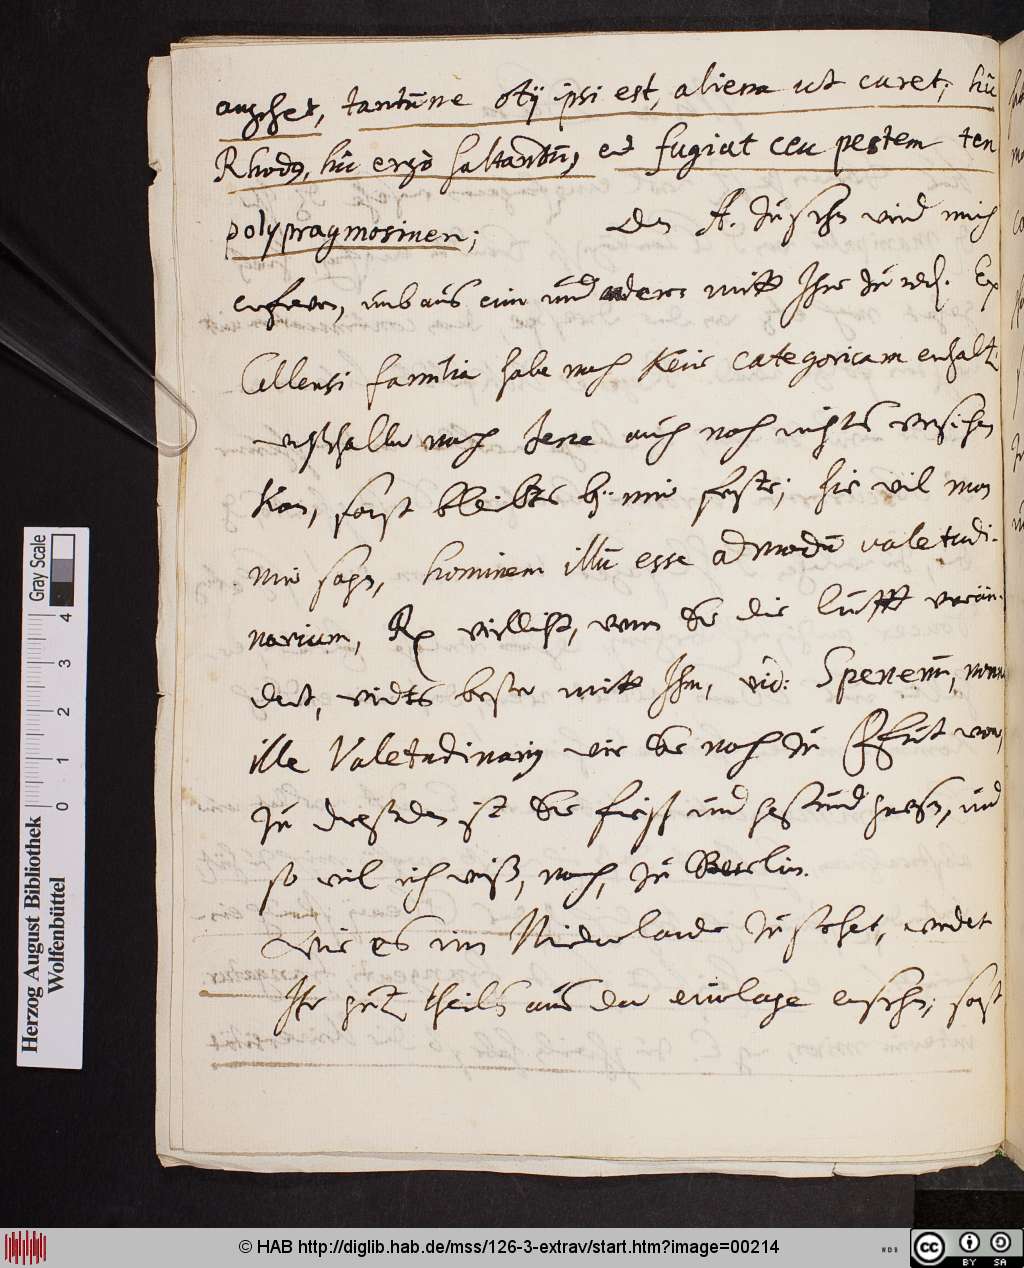 angehet, tantūne otÿ ipsi est, aliena ut curet; hīc
Rhodq, hīc ergò saltandū, et fugiat ceu pestem ten
polypragmosinen; Den A. wird mich
erfrewen, umb aus ein und anders mitt Ihr zu red. Ex
Cellensi familia habe noch Kein categoricam erhalt.
nach Jena auch noch nichts
Kan, sonst bleibts beÿ mir feste; hie wil man
mir sagen, hominem illū esse admodū valetudi-
narium, Rp vielleicht, wenn Er die lufft verän-
dert, wirdts besser mitt Ihm, vid: Spenerū, nonne
ille Valetudinariq wie Er noch zu Ffurt war,
zu dreßden ist Er frisch und gesund gewesen, und
so viel ich weiß, noch, zu Berlin.
Wie es im Niderlande zustehet, werdet
Ihr theils aus der einlage ersehen, sonst
Gray Scale
0 1 2 3 4
Herzog August Bibliothek
Wolfenbüttel
© HAB http://diglib.hab.de/mss/126-3-extrav/start.htm?image=00214
WDB
cc BY SA